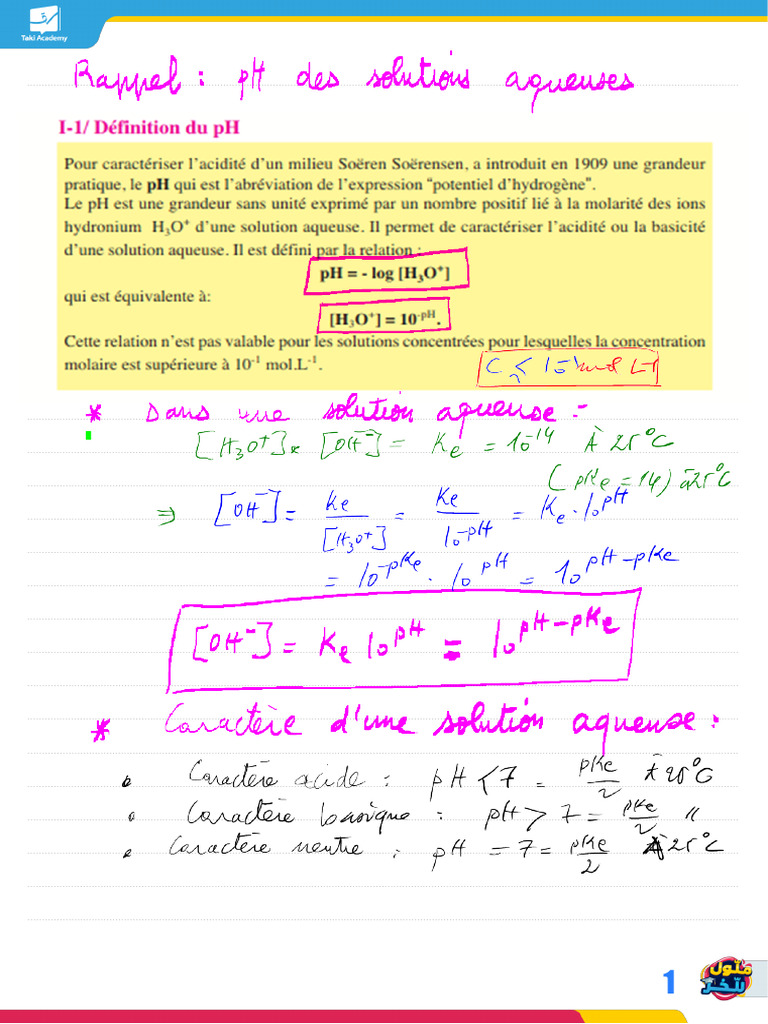 Taki Academy
Rappel : pH des solutions aqueuses
I-1/ Définition du pH
Pour caractériser l'acidité d'un milieu Soëren Soërensen, a introduit en 1909 une grandeur
pratique, le pH qui est l'abréviation de l'expression "potentiel d'hydrogène".
Le pH est une grandeur sans unité exprimé par un nombre positif lié à la molarité des ions
hydronium H₃O⁺ d'une solution aqueuse. Il permet de caractériser l'acidité ou la basicité
d'une solution aqueuse. Il est défini par la relation :
pH = - log [H₃O⁺]
qui est équivalente à:
[H₃O⁺] = 10⁻ᵖᴴ.
Cette relation n'est pas valable pour les solutions concentrées pour lesquelles la concentration
molaire est supérieure à 10⁻¹ mol.L⁻¹.
C ≤ 10⁻¹ mol L⁻¹
* Dans une solution aqueuse :
[H₃O⁺] × [OH⁻] = Ke = 10⁻¹⁴ À 25°C
(pKe = 14) à 25°C
⇒ [OH⁻] = Ke/[H₃O⁺] = Ke/10^-pH = Ke · 10^pH
= 10^-pKe · 10^pH = 10^pH-pKe
[OH⁻] = Ke 10^pH = 10^pH-pKe
* Caractère d'une solution aqueuse :
• Caractère acide : pH < 7 = pKe/2 À 25°C
• Caractère basique : pH > 7 = pKe/2 "
• Caractère neutre : pH = 7 = pKe/2 À 25°C
1
متّول
بتّخرّ